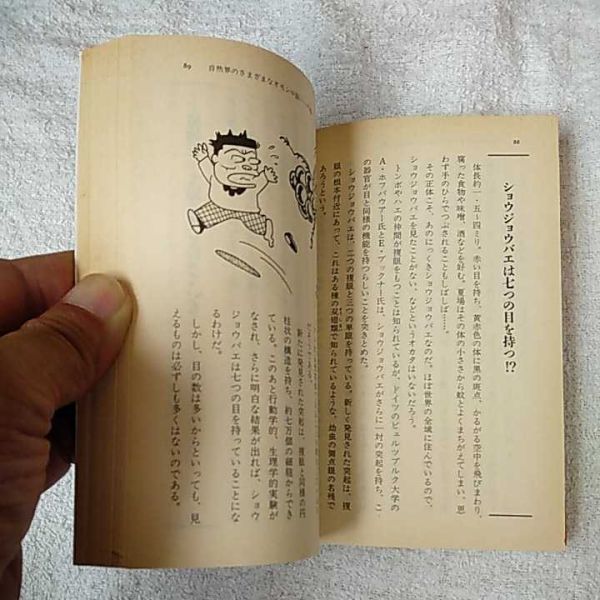 88
ショウジョウバエは七つの目を持つ!?
体長約一・五〜四ミリ。赤い目を持ち、黄赤色の体に黒の斑点。かるがる空中を飛びまわり、
腐った食物や味噌、酒などを好む。夏場はその体の小ささから蚊とよくまちがえてしまい、思
わず手のひらでつぶされることもしばしば……。
その正体こそ、あのにっくきショウジョウバエなのだ。ほぼ世界の全域に住んでいるので、
ショウジョウバエを見たことがない、などというオカタはいないだろう。
トンボやハエの仲間が複眼をもつことは知られているが、ドイツのビュルツブルク大学の
A・ホフバウアー氏とE・ブックナー氏は、ショウジョウバエがさらに一対の突起を持ち、こ
の器官が目と同様の機能を持つらしいことを突きとめた。
ショウジョウバエは、二つの複眼と三つの単眼を持っている。新しく発見された突起は、複
眼の根本付近にあって、これはある種の双翅類で知られているような、幼虫の側点眼の名残で
あろうという。
89 自然界のさまざまな
新たに発見された突起は、複眼と同様の円
柱状の構造を持ち、約七万個の細胞からでき
ている。このあと行動学的、生理学的実験が
なされ、さらに明白な結果が出れば、ショウ
ジョウバエは七つの目を持っていることにな
るわけだ。
しかし、目の数は多いからといっても、見
えるものは必ずしも多くはないのである。